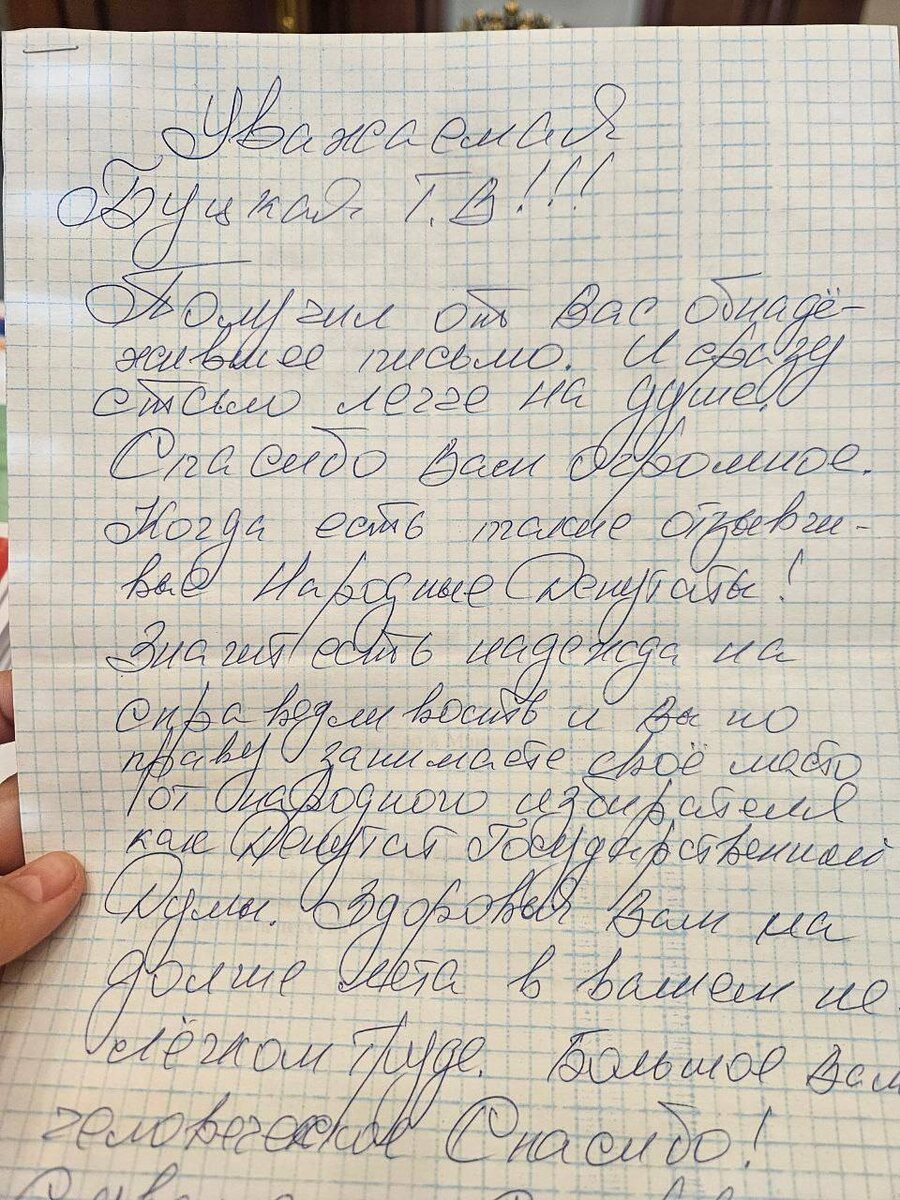 Уважаемая
Буцкая Т.В!!!
Получил от Вас обнадё-
жившее письмо. И сразу
стало легче на душе.
Спасибо Вам огромное.
Когда есть такие отзывчи-
вые Народные Депутаты!
Значит есть надежда на
справедливость и Вы по
праву занимаете своё место
от народного избирателя
как Депутат Государственной
Думы. Здоровья Вам на
долгие лета в вашем не
лёгком труде. Большое Вам
человеческое Спасибо!